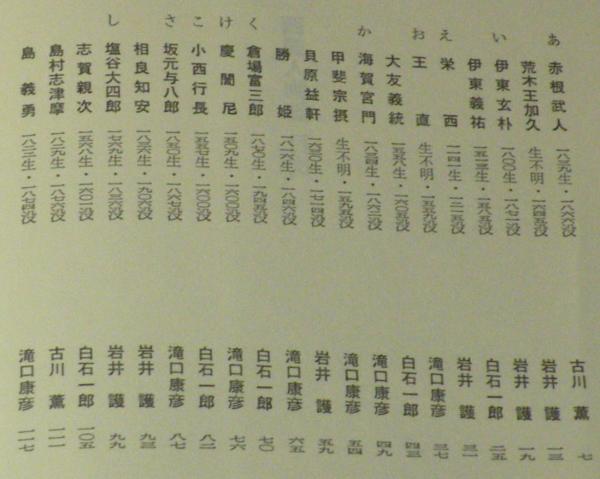 あ 赤根武人 一八三九生・一八六六没 古川 薫 七
荒木王加久 生不明・一六四五没 岩井 護 一三
い 伊東玄朴 一八〇〇生・一八七一没 岩井 護 一九
伊東義祐 一五一三生・一五八五没 白石一郎 二五
え 栄 西 一一四一生・一二一五没 岩井 護 三一
お 王 直 生不明・一五五九没 滝口康彦 三七
大友義統 一五五八生・一六〇五没 白石一郎 四三
か 海賀宮門 一八三四生・一八六二没 滝口康彦 四九
甲斐宗摂 生不明・一五九五没 滝口康彦 五四
貝原益軒 一六三〇生・一七一四没 岩井 護 五九
勝 姫 一八一六生・一八四六没 滝口康彦 六五
く 倉場富三郎 一八七〇生・一九四五没 白石一郎 七〇
け 慶誾尼 一五〇九生・一六〇〇没 滝口康彦 七六
こ 小西行長 一五五七生・一六〇〇没 白石一郎 八二
さ 坂元与八郎 一八五〇生・一八六七没 滝口康彦 八七
相良知安 一八三六生・一九〇六没 岩井 護 九三
し 塩谷大四郎 一七六九生・一八三六没 岩井 護 九九
志賀親次 一五六八生・一六〇一没 白石一郎 一〇五
島村志津摩 一八三三生・一八七六没 古川 薫 一一一
島 義勇 一八二二生・一八七四没 滝口康彦 一一七